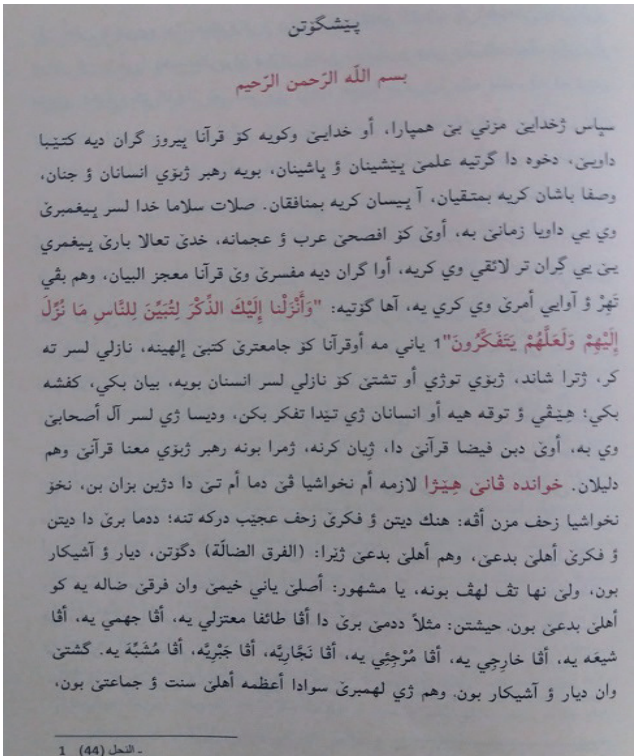 پـێشگۆتن
بسم اللّه الرّحمن الرّحيم
سپاس ژخدايێ مزني بێ همپارا، أو خدايێ وكويه كۆ قرآنا پيروز گران ديه كتێبا
داويێ، دخوه دا گرتيه علمێ پێشينان ؤ پاشينان، بويه رهبر ژبۆي انسانان ؤ جنان،
وصفا باشان كريه بمتـقيان، آ پيسان كريه بمنافقان. صلات سلاما خدا لسر پيغمبرێ
وي يي داويا زمانێ به، أوێ كۆ افصحێ عرب ؤ عجمانه، خدێ تعالا بارێ پيغمري
يێ يي گران تر لائقي وي كريه، أوا گران ديه مفسرێ وێ قرآنا معجز البيان، وهم بڤي
تهرْ ؤ آوايي أمرێ وي كري يه، آها گۆتيه: "وَأَنْزَلْنا إِلَيْكَ الذِّكْرَ لِتُبَيِّنَ لِلنَّاسِ مَا نُزِّلَ
إِلَيْهِمْ وَلَعَلَّهُمْ يَتَفَكَّرُونَ"1 ياني مه أوقرآنا كۆ جامعترێ كتبێ إلهينه، نازلي لسر ته
كر، ژترا شاند، ژبۆي توژي أو تشتێ كۆ نازلي لسر انسنان بويه، بيان بكي، كفشه
بكي؛ هيـڤي ؤ توقه هيه أو انسانان ژي تێدا تفكر بكن، وديسا ژي لسر آل أصحابێ
وي به، أوێ دبن فيضا قرآنێ دا، ژيان كرنه، ژمرا بونه رهبر ژبۆي معنا قرآنێ وهم
دليلان. خوانده ڤانێ هێـژا لازمه أم نخواشيا ڤێ دما أم تـێ دا دژين بزان بن، نخۆ
نخواشيا زحف مزن أڤه: هنك ديتن ؤ فكرێ زحف عجێب دركه تنه؛ ددما برێ دا ديتن
ؤ فكرێ أهلێ بدعێ، وهم أهلێ بدعێ ژێرا: (الفرق الضالّة) دگۆتن، ديار ؤ آشيكار
بون، ولێ نها تڤ لهڤ بونه، يا مشهور: أصلێ ياني خيمێ وان فرقێ ضاله يه كو
أهلێ بدعێ بون. حيشتن: مثلاً ددمێ برێ دا أڤا طائفا معتزلي يه، أڤا جهمي يه، أڤا
شيعَه يه، أڤا خارِجي يه، أڤا مُرْجئِي يه، أڤا نَجَّاريَّه، أڤا جَبْريَّه، أڤا مُشَبِّهَ يه. گشتێ
وان ديار ؤ آشيكار بون. وهم ژي لهمبرێ سوادا أعظمه أهلێ سنت ؤ جماعتێ بون،
1 ـ النحل (44)